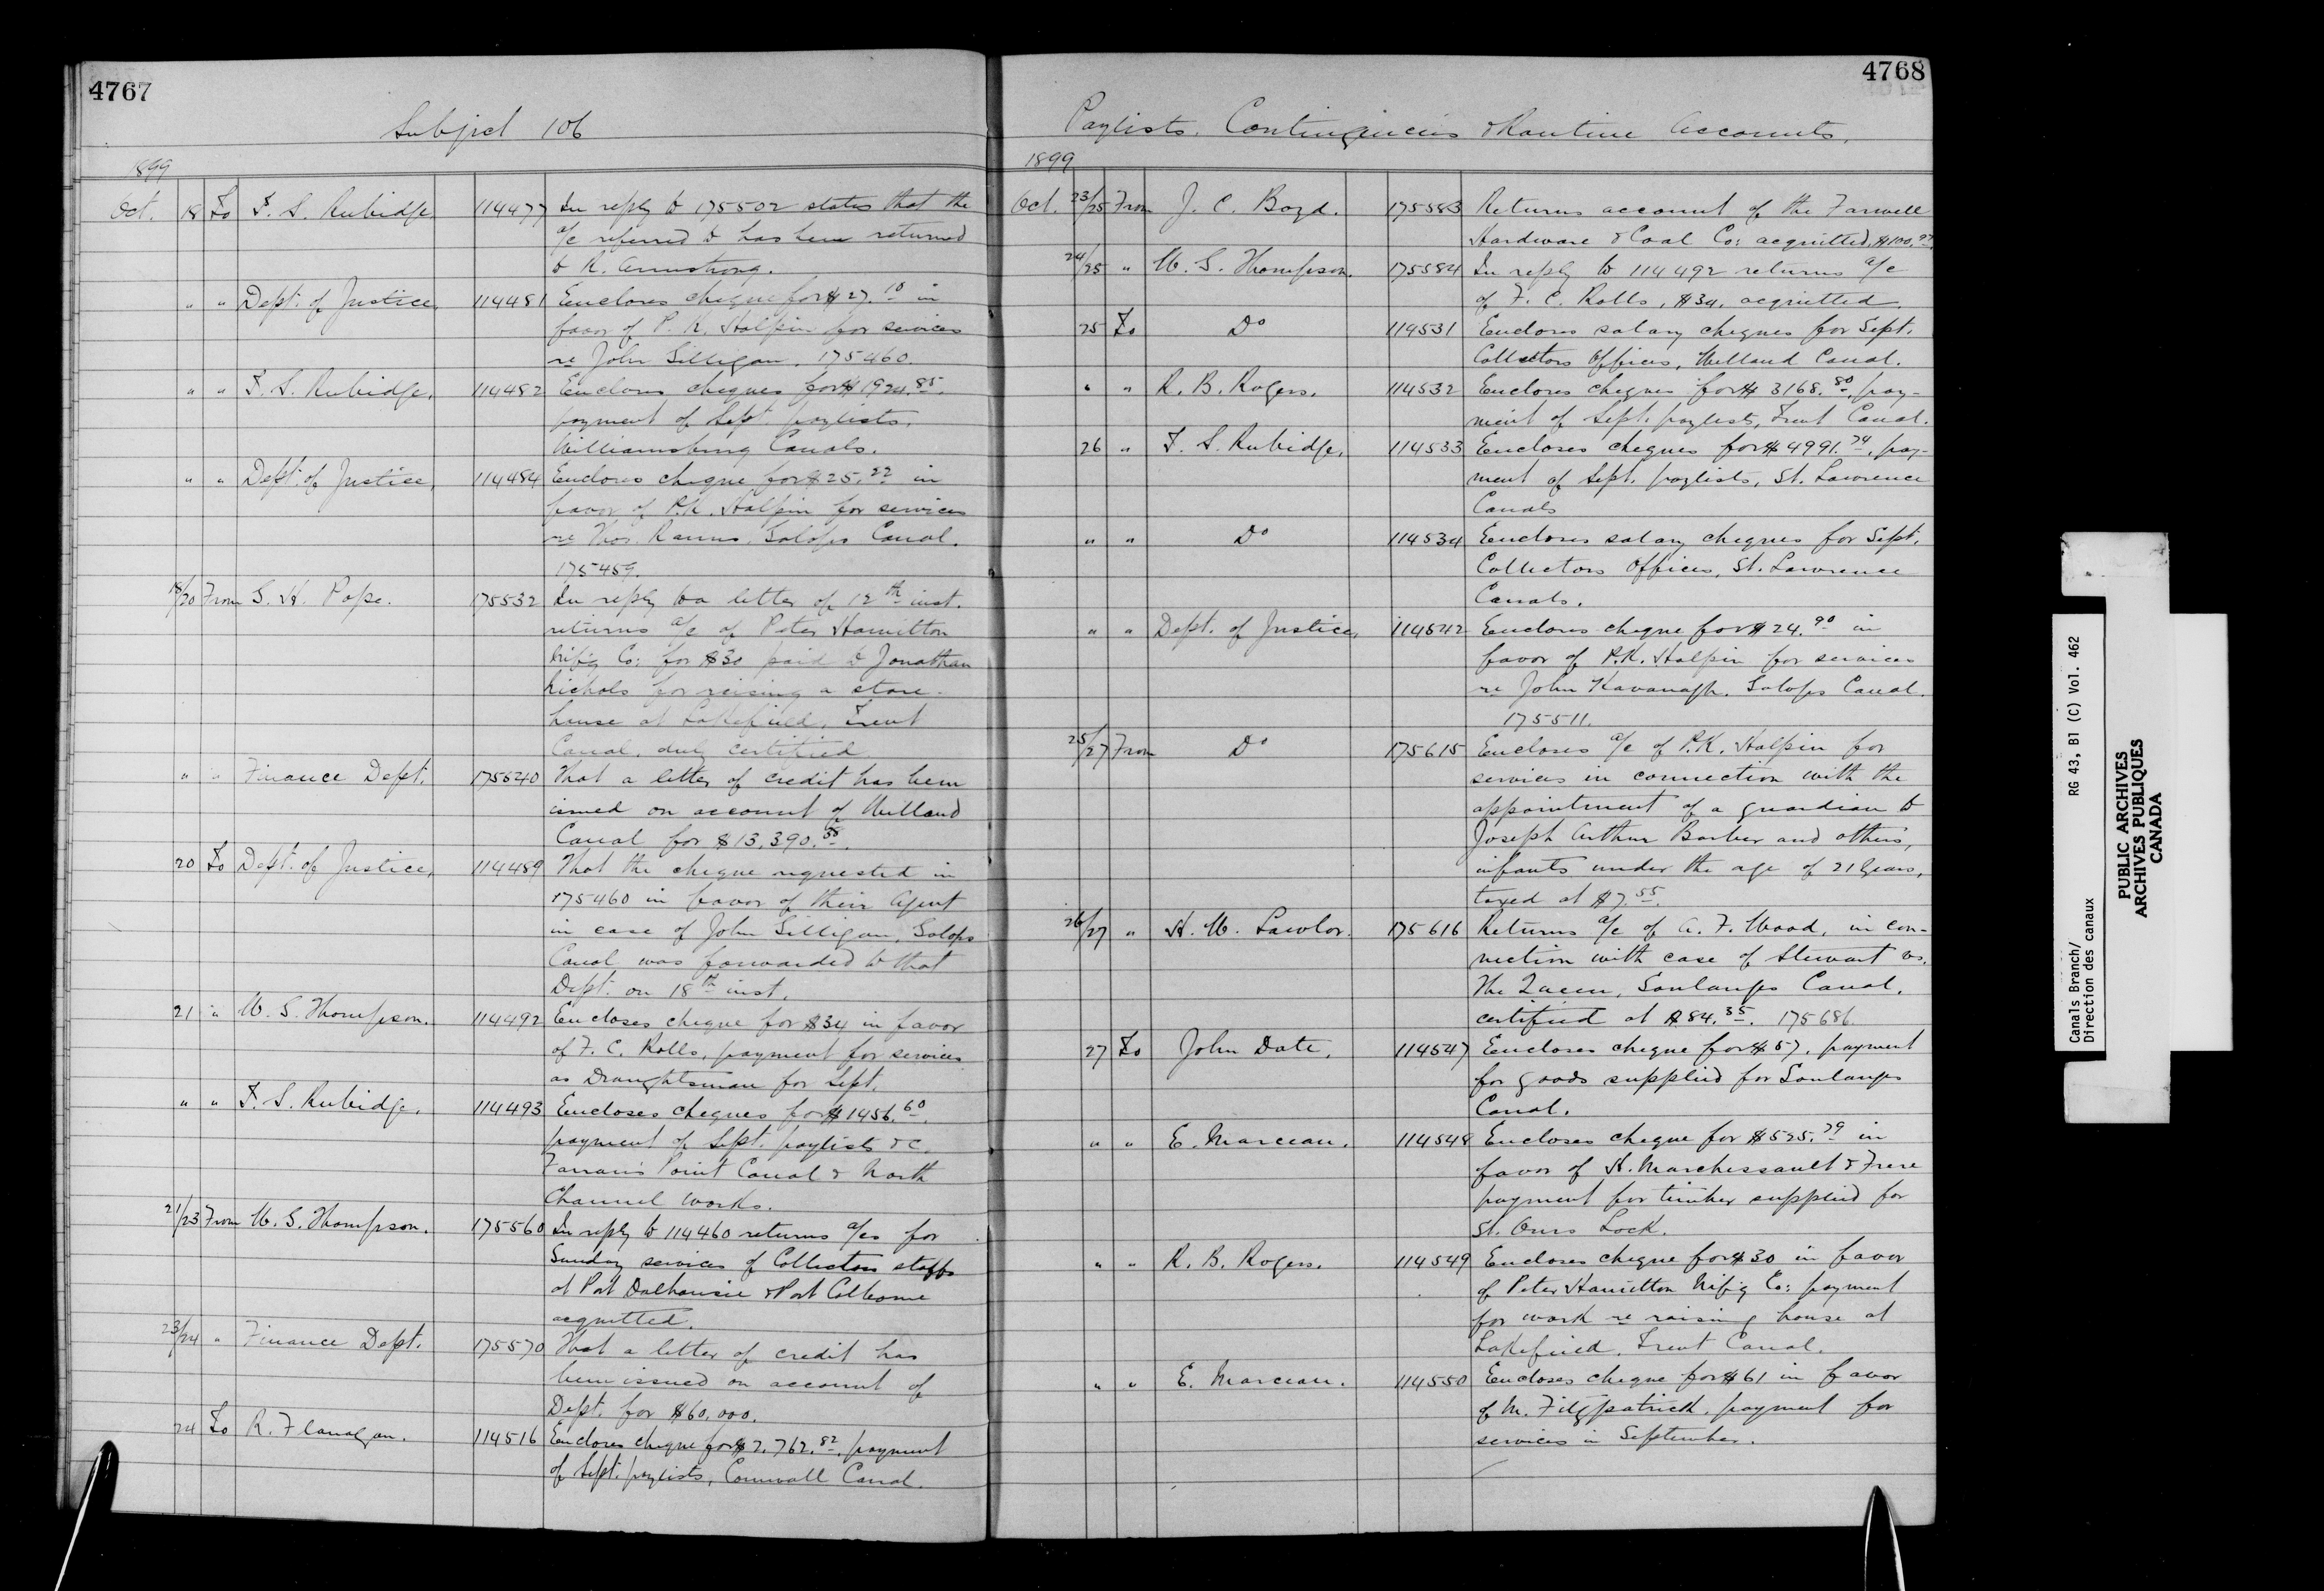 4767
Subject 106
1899
Oct. 18 To T. S. Rubidge 114477 In reply to 175502 states that the
a/c referred to has been returned
to R. Armstrong.
" " Dept. of Justice, 114481 Encloses cheque for $27.10 in
favor of P. K. Halpin for services
re John Gilligan. 175460.
" " T. S. Rubidge. 114482 Encloses cheques for $1924.85.
payment of Sept. paylists.
Williamsburg Canals.
" " Dept. of Justice, 114484 Encloses cheque for $25.22 in
favor of P.K. Halpin for services
re Thos. Galops Canal.
175459.
18/20 From S. H. Pope. 175532 In reply to a letter of 12th inst.
returns a/c of Peter Hamilton
Mif'g Co: for $30 paid to Jonathan
Nichols for raising a store-
house at Lakefield, Trent
Canal, duly certified.
" " Finance Dept. 175540 That a letter of credit has been
issued on account of Welland
Canal for $13,390.58.
20 To Dept. of Justice, 114489 That the cheque requested in
175460 in favor of their Agent
in case of John Gilligan, Galops
Canal was forwarded to that
Dept. on 18th inst.
21 " W. G. Thompson. 114492 Encloses cheque for $34 in favor
of F. C. Rolls, payment for services
as Draughtsman for Sept.
" " T. S. Rubidge. 114493 Encloses cheques for $1456.60.
payment of Sept. paylists &c.
Farran's Point Canal & North
Channel works.
21/23 From W. G. Thompson. 175560 In reply to 114460 returns a/cs for
Sunday services of Collectors staffs
at Port Dalhousie & Port Colborne
acquitted.
23/24 " Finance Dept. 175570 That a letter of credit has
been issued on account of
Dept. for $60,000.
24 To R. Flanagan. 114516 Encloses cheque for $2,762.82, payment
of Sept. paylists, Cornwall Canal.
4768
Paylists. Contingencies & Routine Accounts.
1899
Oct. 23/25 From J. C. Boyd. 175583 Returns account of the Farwell
Hardware & Coal Co: acquitted, $100.97.
24/25 " W. G. Thompson. 175584 In reply to 114492 returns a/c
of F. C. Rolls, $34. acquitted.
25 To Do 114531 Encloses salary cheques for Sept.
Collectors Offices, Welland Canal.
" " R. B. Rogers. 114532 Encloses cheques for $3168.80, pay-
ment of Sept. paylists, Trent Canal.
26 " T. S. Rubidge. 114533 Encloses cheques for $4991.74, pay-
ment of Sept. paylists, St. Lawrence
Canals
" " Do 114534 Encloses salary cheques for Sept.
Collectors Offices, St. Lawrence
Canals.
" " Dept. of Justice, 114542 Encloses cheque for $24.90 in
favor of P.K. Halpin for services
re John Kavanagh. Galops Canal.
175511.
25/27 From Do 175615 Encloses a/c of P.K. Halpin for
services in connection with the
appointment of a guardian to
Joseph Arthur Barber and others,
infants under the age of 21 years,
taxed at $7.55.
26/27 " H. W. Lawlor. 175616 Returns a/c of A. F. Wood, in con-
nection with case of Stewart vs.
The Queen, Soulanges Canal.
certified at $84.35. 175686.
27 To John Date, 114547 Encloses cheque for $57, payment
for goods supplied for Soulanges
Canal.
" " E. Marceau. 114548 Encloses cheque for $525.79 in
favor of H. Marchessault & Frere
payment for timber supplied for
St. Ours Lock.
" " R. B. Rogers. 114549 Encloses cheque for $30 in favor
of Peter Hamilton Mif'g Co: payment
for work re raising house at
Lakefield, Trent Canal.
" " E. Marceau. 114550 Encloses cheque for $61 in favor
of M. Fitzpatrick, payment for
services in September.
Canals Branch/ RG 43, B1 (C) Vol. 462
Direction des canaux
PUBLIC ARCHIVES
ARCHIVES PUBLIQUES
CANADA